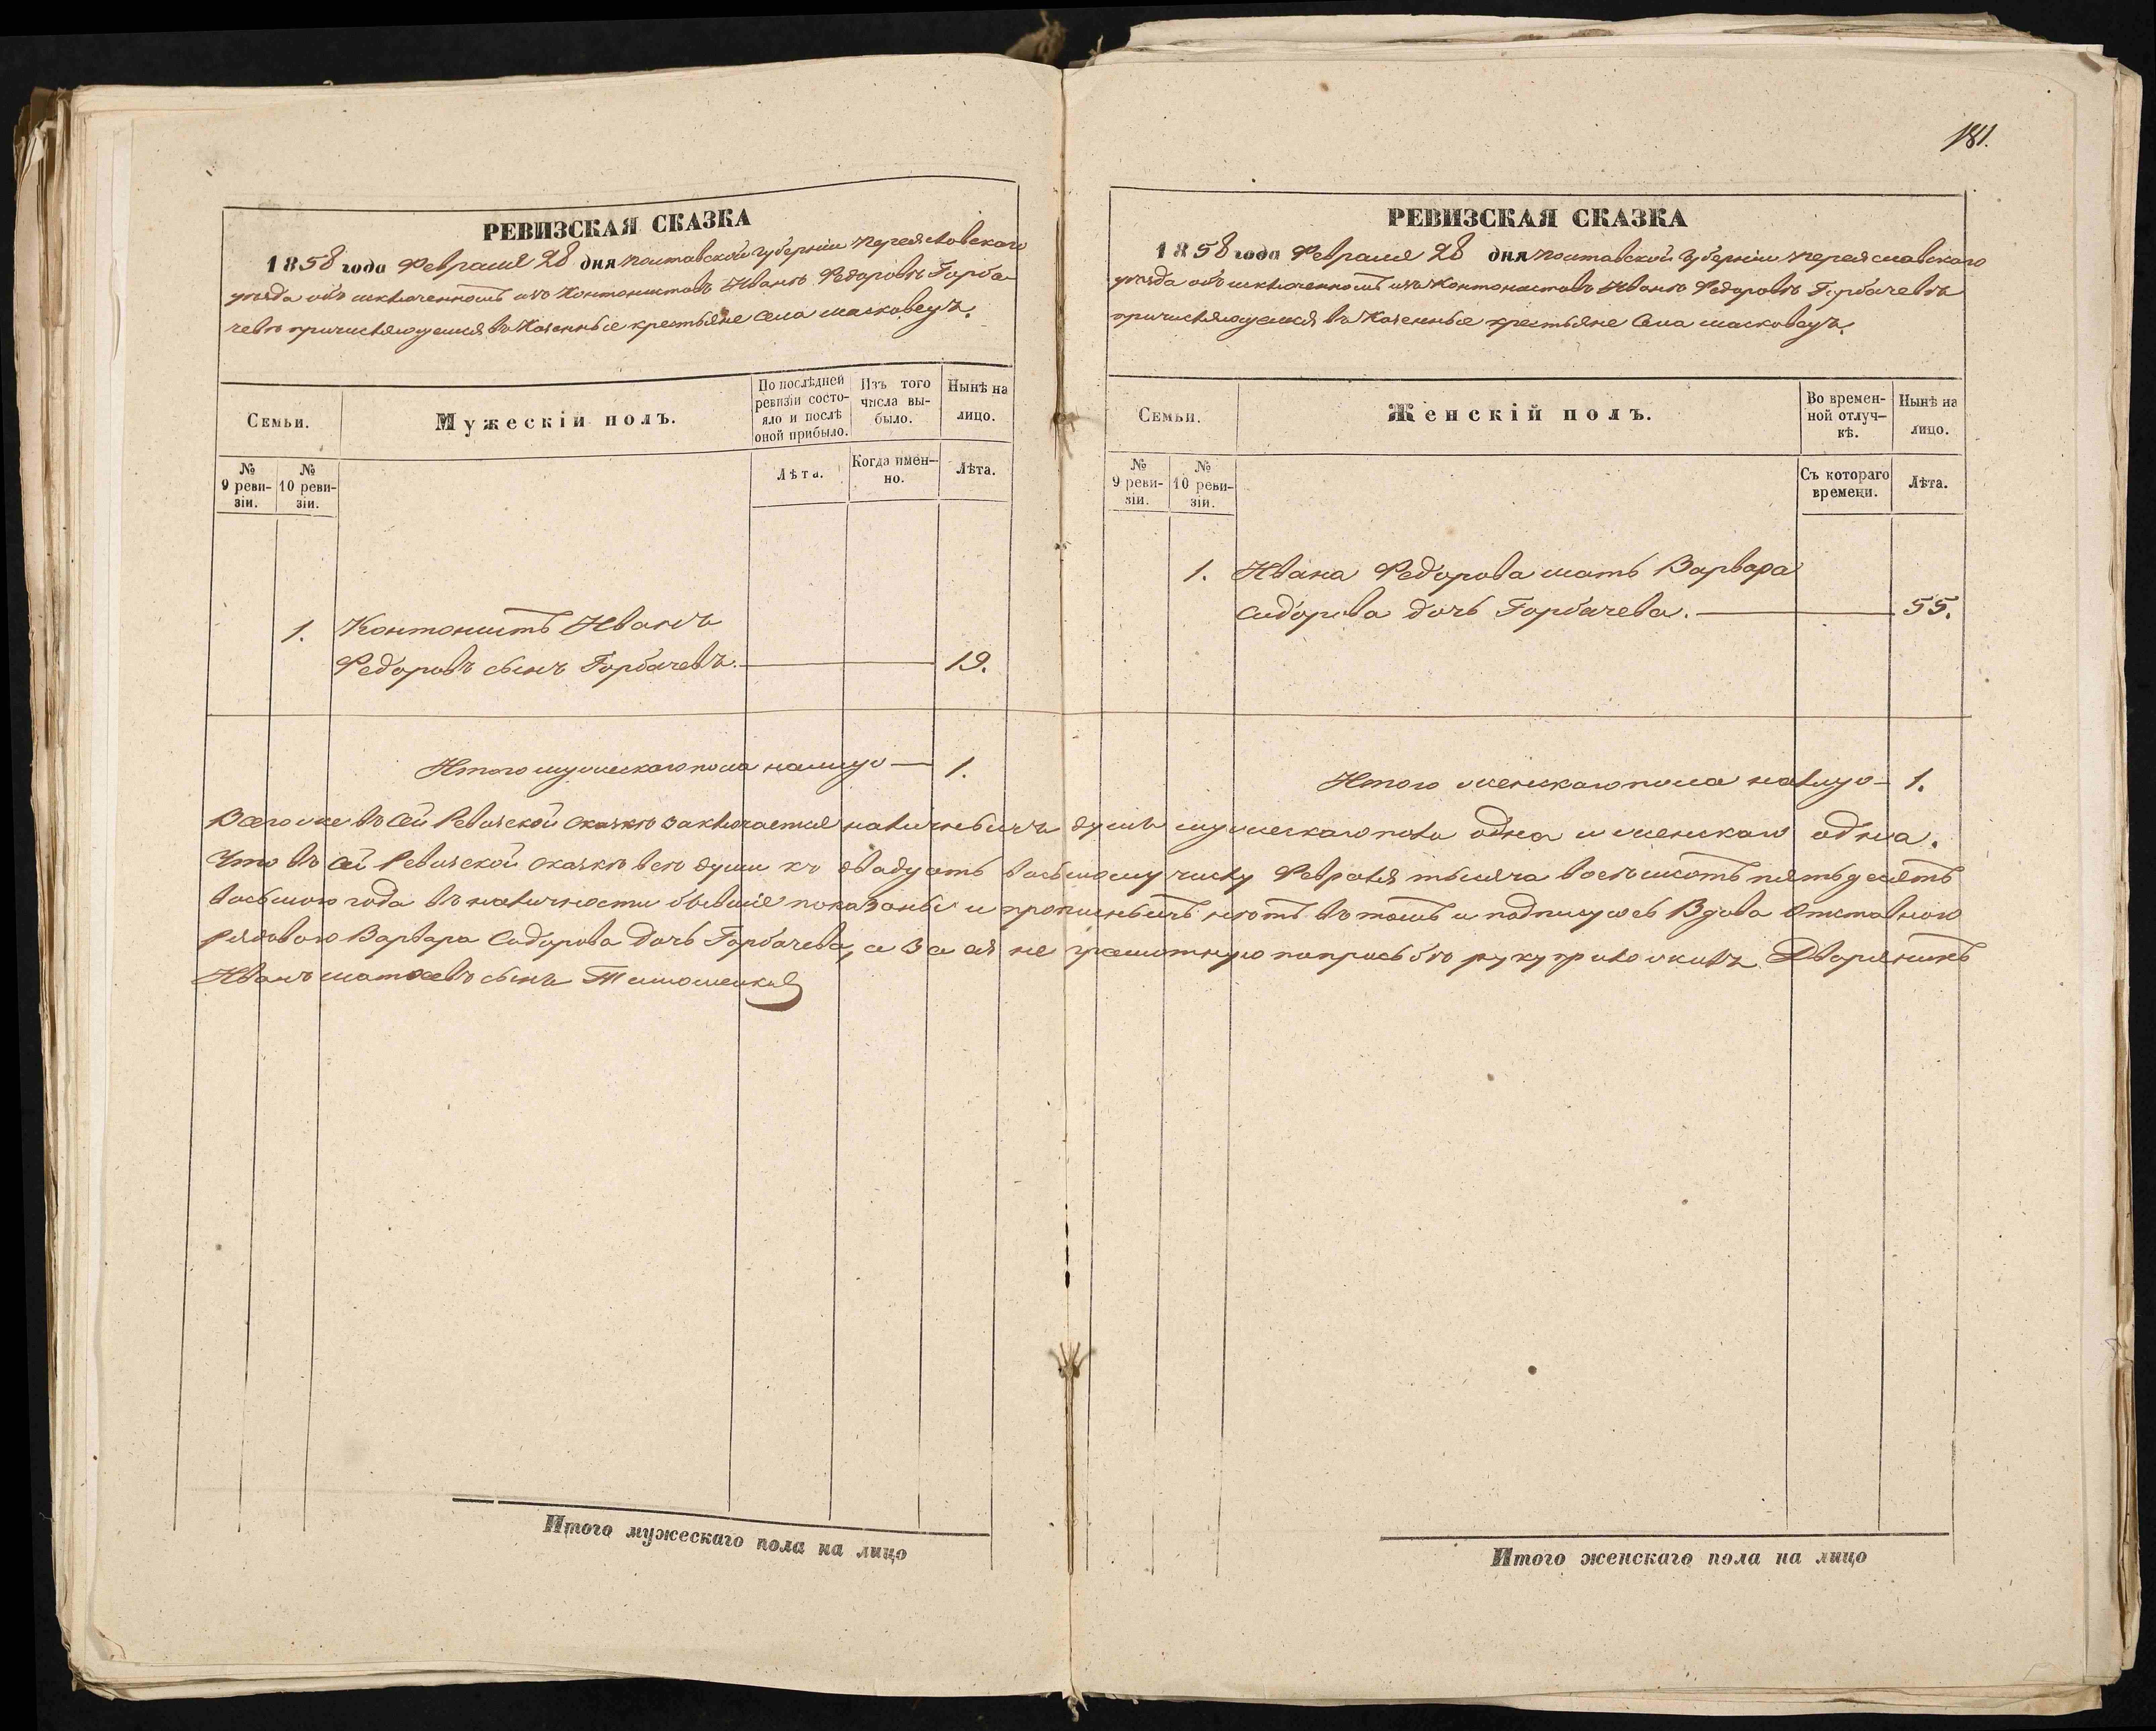 181.
РЕВИЗСКАЯ СКАЗКА
1858 года Февраля 28 дня Полтавской Губерніи Переясловскаго
уѣзда объ исключенномъ изъ Контонистовъ Иванѣ Федоровѣ Горба-
чевѣ причисляющемся въ Казенные крестьяне Села масковецъ.
Семьи.
Мужескій полъ.
По послѣдней ревизіи состояло и послѣ оной прибыло.
Изъ того числа выбыло.
Нынѣ на лицо.
№ 9 ревизіи.
№ 10 ревизіи.
Лѣта.
Когда именно.
Лѣта.
1. Контонистъ Иванъ
Федоровъ сынъ Горбачевъ. 19.
Итого мужескаго пола налицо — 1.
РЕВИЗСКАЯ СКАЗКА
1858 года Февраля 28 дня Полтавской Губерніи Переяславскаго
уѣзда объ исключенномъ изъ Контонистовъ Иванѣ Федоровѣ Горбачевѣ
причисляющемся въ Казенные крестьяне Села масковецъ.
Семьи.
Женскій полъ.
Во временной отлучкѣ.
Нынѣ на лицо.
№ 9 ревизіи.
№ 10 ревизіи.
Съ котораго времени.
Лѣта.
1. Ивана Федорова мать Варвара
Сидорова дочь Горбачева. 55.
Итого женскаго пола налицо — 1.
Всего же въ сей Ревизской сказкѣ заключается наличныхъ душъ мужескаго пола одна и женскаго одна.
Что въ сей Ревизской сказкѣ всѣ души къ двадцать восьмому числу Февраля тысяча восемьсотъ пятьдесятъ
восьмого года въ наличности бывшіе показаны и прописныхъ нѣтъ въ томъ и подписуюсь Вдова Отставного
рядового Варвара Сидорова Дочь Горбачева, а за ея не грамотную по просьбѣ руку приложилъ Дворянинъ
Иванъ матвеевъ сынъ Тимошенко
Итого мужескаго пола на лицо
Итого женскаго пола на лицо